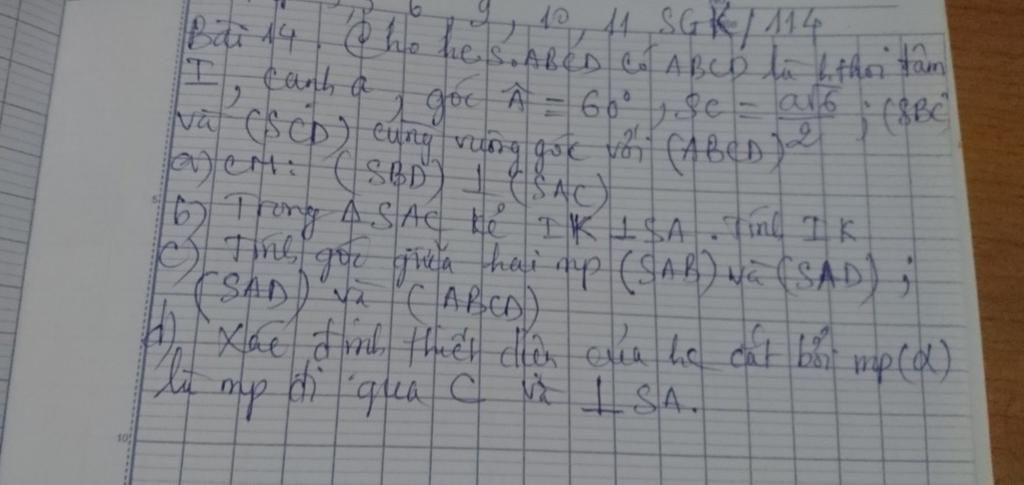 6 9, 10, 11 SGK/114
Bài 14. Cho hc S.ABCD có ABCD là h.thoi tâm
I, cạnh a, góc Â = 60°, SC = a√6/2; (SBC)
và (SCD) cùng vuông góc với (ABCD)
a) CM: (SBD) ⊥ (SAC)
b) Trong Δ SAC kẻ IK ⊥ SA. Tính IK
c) Tính góc giữa hai mp (SAB) và (SAD);
(SAD) và (ABCD)
d) Xác định thiết diện của hc cắt bởi mp(α)
là mp đi qua C và ⊥ SA.
10